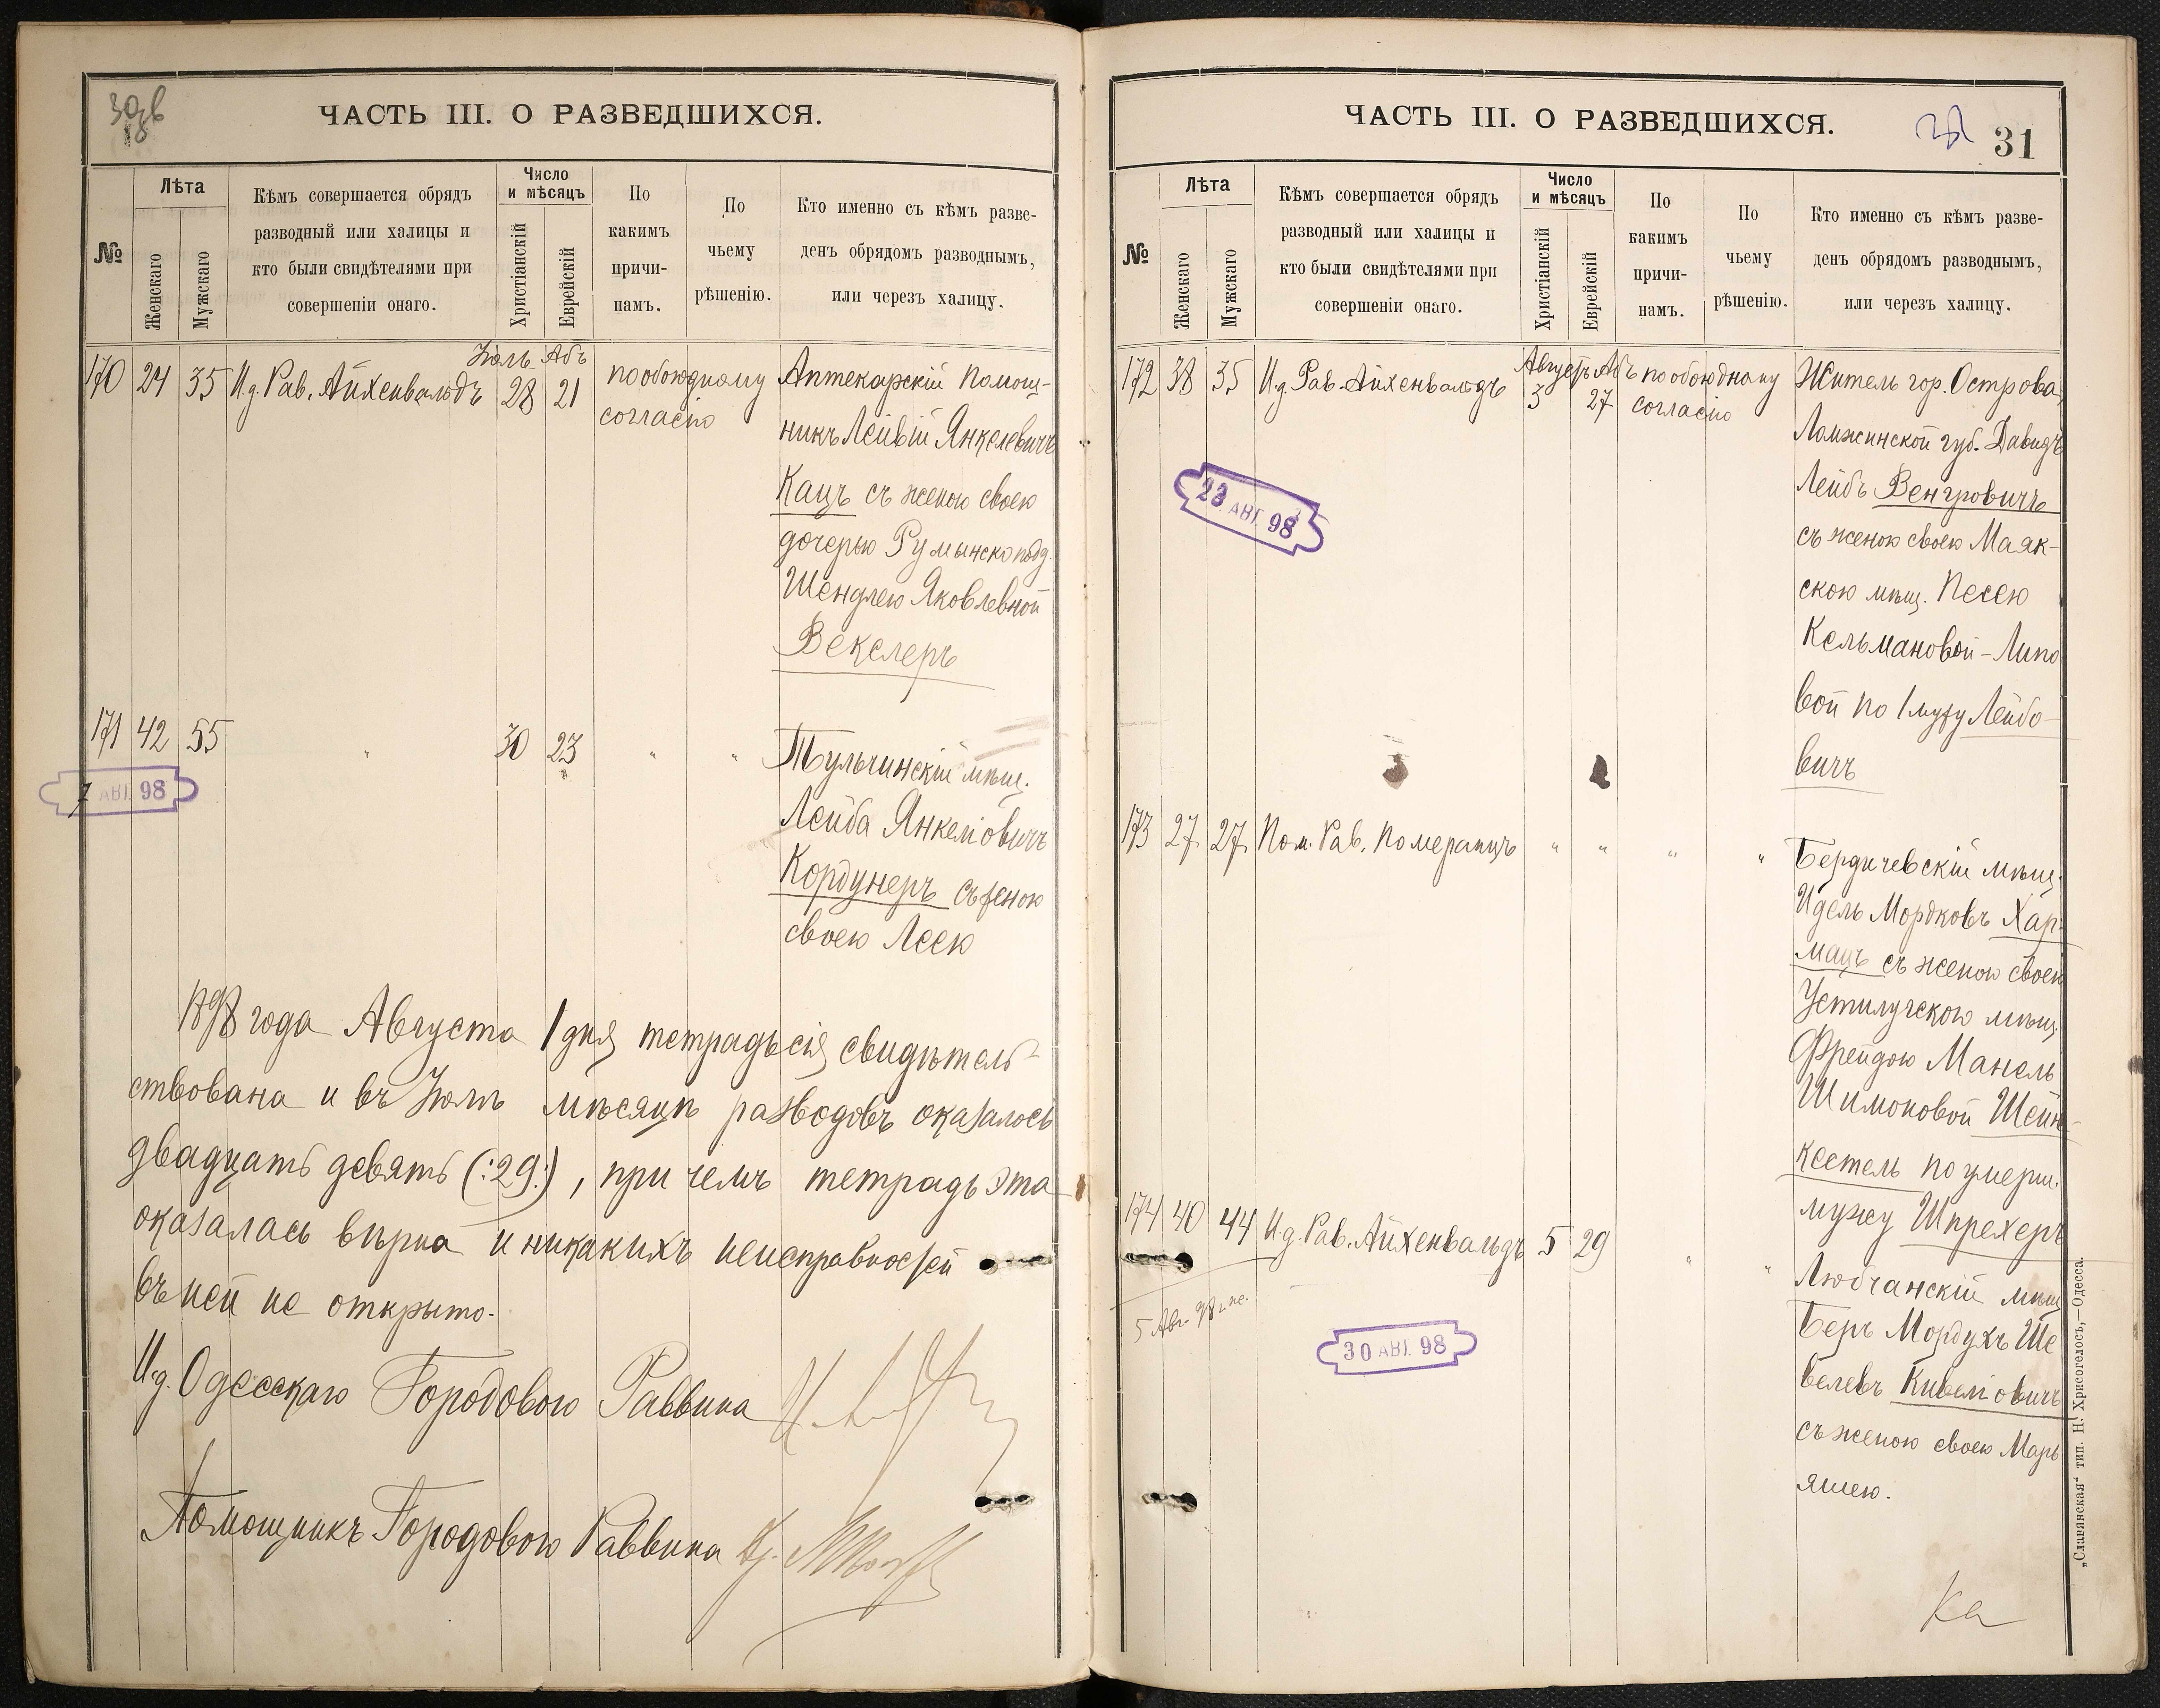 30
18
ЧАСТЬ III. О РАЗВЕДШИХСЯ.
№
Лѣта
Женскаго
Мужскаго
Кѣмъ совершается обрядъ
разводный или халицы и
кто были свидѣтелями при
совершеніи онаго.
Число
и мѣсяцъ
Христіанскій
Еврейскій
По
какимъ
причи-
намъ.
По
чьему
рѣшенію.
Кто именно съ кѣмъ разве-
денъ обрядомъ разводнымъ,
или черезъ халицу.
Іюль Абъ
170 24 35 И.д. Рав. Айхенвальдъ 28 21 по обоюдному
согласію
Аптекарскій Помощ-
никъ Лейвій Янкелевичъ
Кацъ съ женою своею
дочерью Румынско подд.
Шендлею Яковлевной
Векслеръ
171 42 55 " 30 23 " "
Тульчинскій мѣщ.
Лейба Янкеліовичъ
Кордунеръ съ женою
своею Леею
7 АВГ. 98
1898 года Августа 1 дня тетрадь сія свидѣтель-
ствована и въ Іюлѣ мѣсяцѣ разводовъ оказалось
двадцать девять (:29:), при чемъ тетрадь эта
оказалась вѣрна и никакихъ неисправностей
въ ней не открыто.
И.д. Одесскаго Городового Раввина
Помощникъ Городового Раввина
ЧАСТЬ III. О РАЗВЕДШИХСЯ.
31
№
Лѣта
Женскаго
Мужскаго
Кѣмъ совершается обрядъ
разводный или халицы и
кто были свидѣтелями при
совершеніи онаго.
Число
и мѣсяцъ
Христіанскій
Еврейскій
По
какимъ
причи-
намъ.
По
чьему
рѣшенію.
Кто именно съ кѣмъ разве-
денъ обрядомъ разводнымъ,
или черезъ халицу.
Августъ Абъ
172 38 35 И.д. Рав. Айхенвальдъ 3 27 по обоюдному
согласію
Житель гор. Острова,
Ломжинской губ. Давидъ
Лейбъ Венгровичъ
съ женою своею Маяк-
скою мѣщ. Песею
Кельмановой-Липо
вой по 1 мужу Лейбо-
вичъ
23 АВГ. 98
173 27 27 Пом. Рав. Померанцъ " " " "
Бердичевскій мѣщ.
Идель Мордковъ Хар-
мацъ съ женою своею
Устилугскою мѣщ.
Фрейдою Манель
Шимоновой Шейн-
кестель по умерш.
мужу Шпрехеръ
174 40 44 И.д. Рав. Айхенвальдъ 5 29 " "
Любчанскій мѣщ
Беръ Мордухъ Ше
велевъ Кивеліовичъ
съ женою своею Марь
яшею.
5 Авг. 98
30 АВГ. 98
Ка
„Славянская“ тип. Н. Хрисогелосъ,—Одесса.